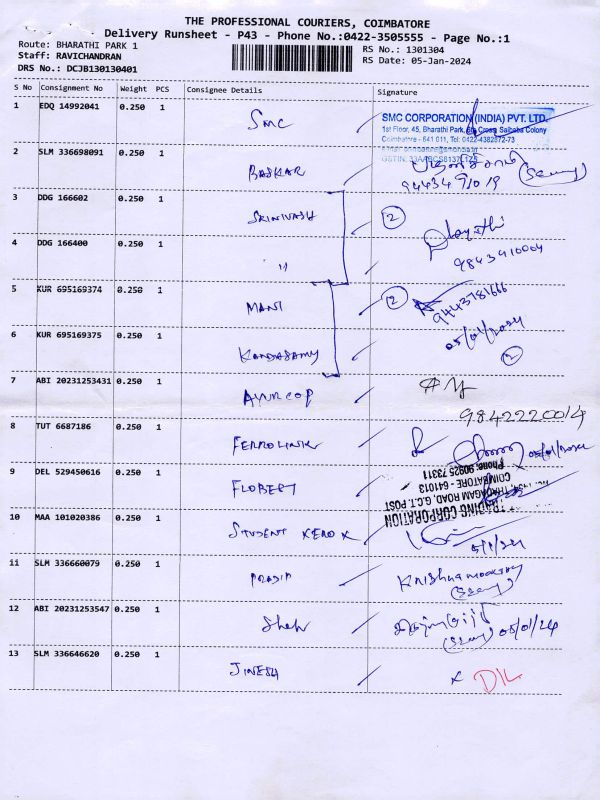 THE PROFESSIONAL COURIERS, COIMBATORE
Delivery Runsheet - P43 - Phone No.:0422-3505555 - Page No.:1
Route: BHARATHI PARK 1
RS No.: 1301304
Staff: RAVICHANDRAN
RS Date: 05-Jan-2024
DRS No.: DCJB130130401
S No Consignment No Weight PCS Consignee Details Signature
1 EDQ 14992041 0.250 1 SMC
SMC CORPORATION (INDIA) PVT. LTD.
1st Floor, 45, Bharathi Park, 8th Cross Saibaba Colony
Coimbatore - 641 011, Tel: 0422-4382872-73
2 SLM 336698091 0.250 1 BASKAR
94434 91019
3 DDG 166602 0.250 1 SRINIVASH 2
4 DDG 166400 0.250 1 "
9843910004
5 KUR 695169374 0.250 1 MANI 2 9443781666
05/01/2024
6 KUR 695169375 0.250 1 KANDASAMY 2
7 ABI 20231253431 0.250 1 AYURCOP
9842220014
8 TUT 6687186 0.250 1 FERROLINK
9 DEL 529450616 0.250 1 FLOBERT
TRADING CORPORATION
THADAGAM ROAD, G.C.T. POST
COIMBATORE - 641013
Phone: 90925 73311
10 MAA 101020386 0.250 1 STUDENT XEROX
5/1/24
11 SLM 336660079 0.250 1 PRADIP Krishnamoorthy
12 ABI 20231253547 0.250 1 Shek
05/01/24
13 SLM 336646620 0.250 1 JINESH x DIL